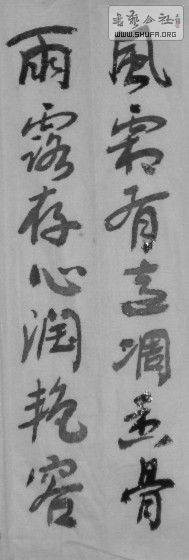 書艺公社
WWW.SHUFA.ORG
風霜有意凋香骨
雨露存心润艳容